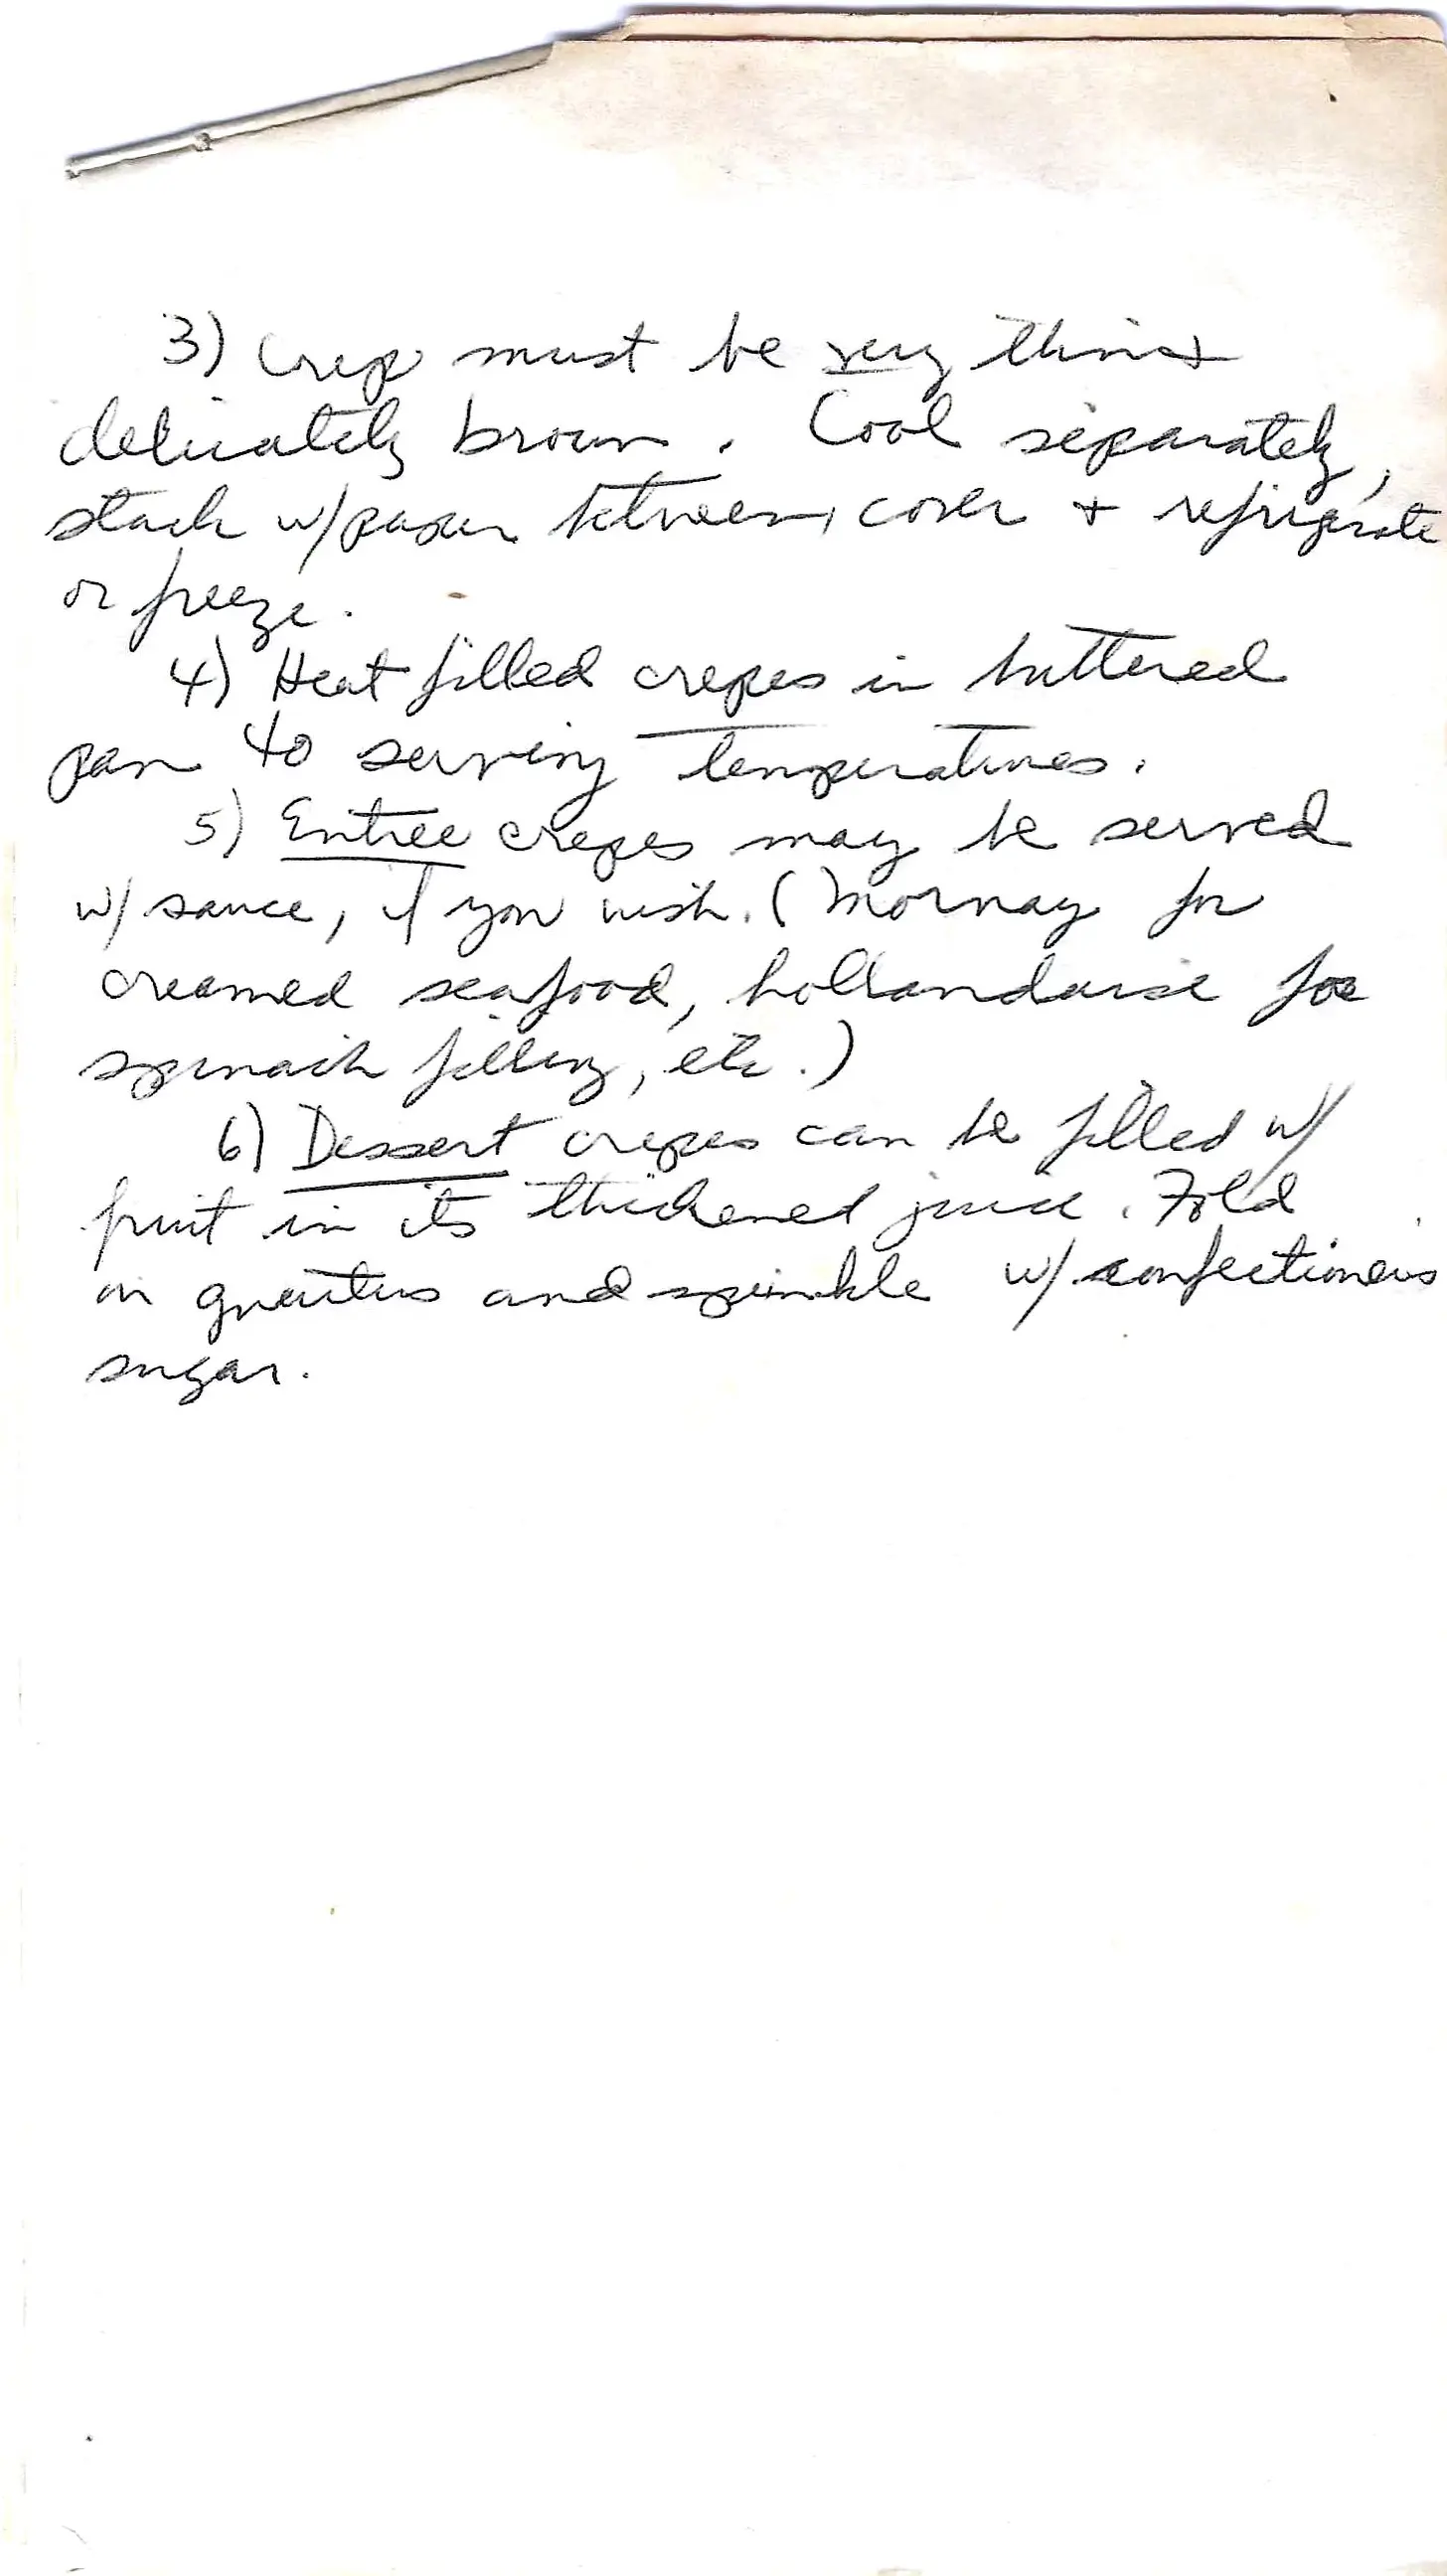 3) Crep must be very thin +
delicately brown. Cool separately,
stack w/paper between, cover + refrigerate
or freeze.
4) Heat filled crepes in buttered
pan to serving temperatures.
5) Entree crepes may be served
w/ sauce, if you wish. (Mornay for
creamed seafood, hollandaise for
spinach filling, etc.)
6) Dessert crepes can be filled w/
fruit in its thickened juice. Fold
in quarters and sprinkle w/ confectioners
sugar.